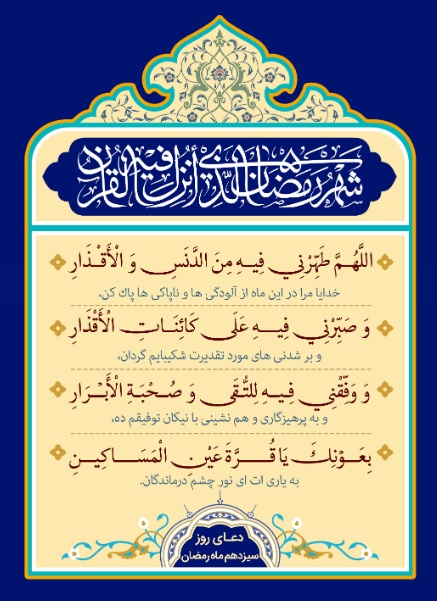 شهر رمضان الذی أنزل فیه القرآن
اللَّهُمَّ طَهِّرْنِي فِيهِ مِنَ الدَّنَسِ وَ الْأَقْذَارِ
خدایا مرا در این ماه از آلودگی ها و ناپاکی ها پاک کن،
وَ صَبِّرْنِي فِيهِ عَلَى كَائِنَاتِ الْأَقْذَارِ
و بر شدنی های مورد تقدیرت شکیبایم گردان،
وَ وَفِّقْنِي فِيهِ لِلتُّقَى وَ صُحْبَةِ الْأَبْرَارِ
و به پرهیزگاری و هم نشینی با نیکان توفیقم ده،
بِعَوْنِكَ يَا قُرَّةَ عَيْنِ الْمَسَاكِينِ
به یاری ات ای نور چشم درماندگان.
دعای روز
سیزدهم ماه رمضان